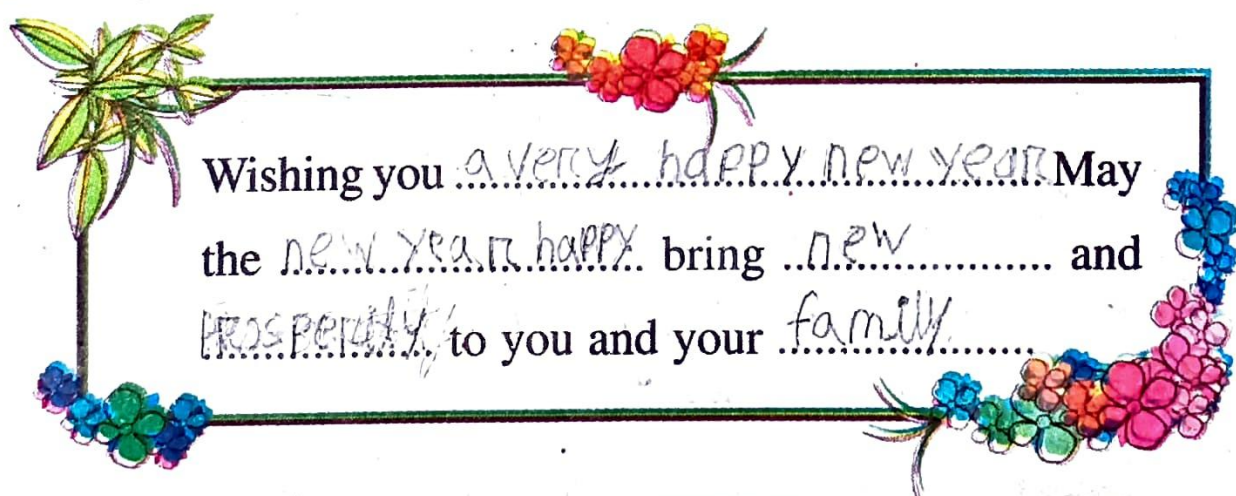 Wishing you a very happy new year May
the new year happy bring new and
prosperity to you and your family